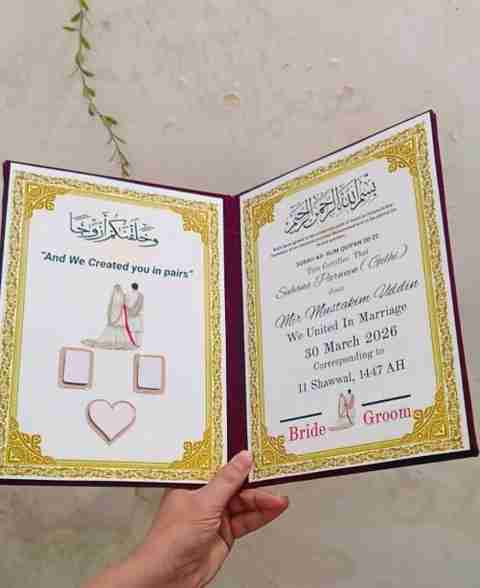 وخلقنكم أزوجا
"And We Created you in pairs"
بسم الله الرحمن الرحيم
SURAH AR- RUM QUR'AN 30:21
This Certifies That
Suhana Parween (Gulhi)
And
Mr. Mustakim Uddin
We United In Marriage
30 March 2026
Corresponding to
11 Shawwal, 1447 AH
Bride Groom